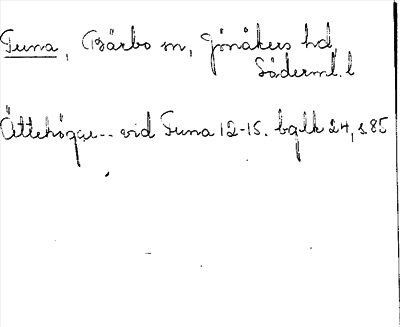 Tuna, Bärbo sn, Jönåkers hd,
Söderml. l
Ättehögar -- vid Tuna 12-15. bglk 24, s. 85